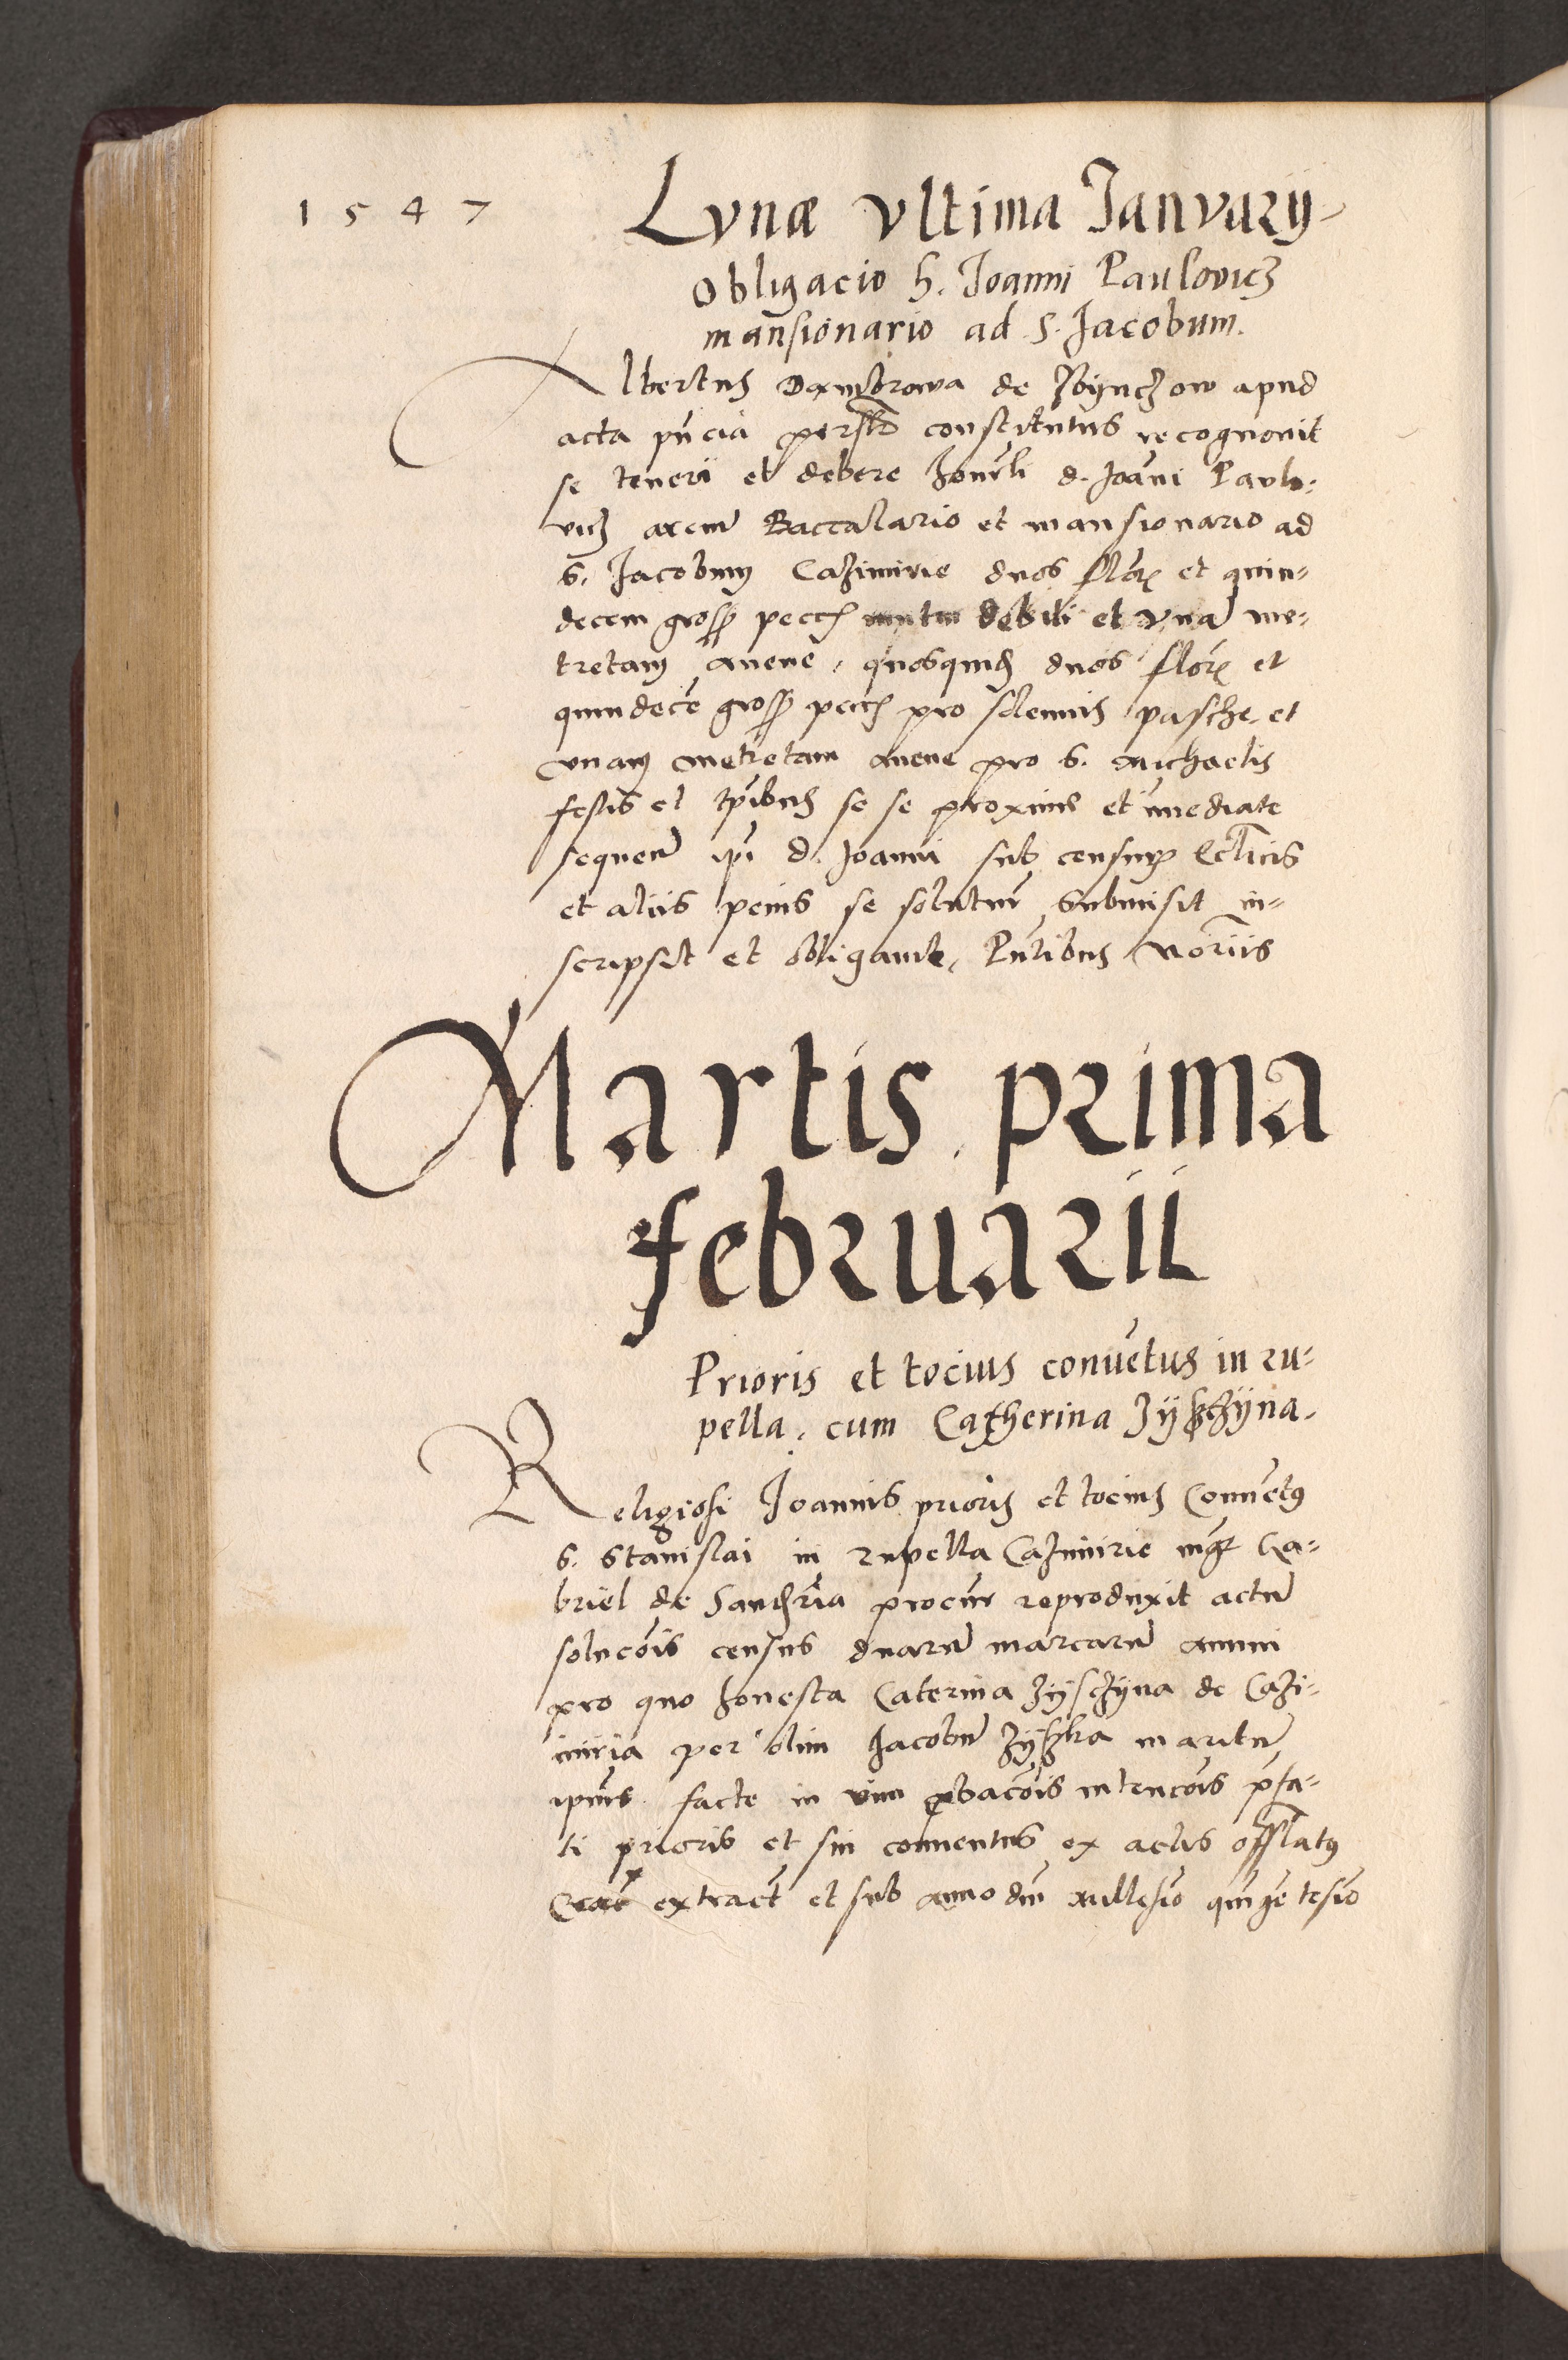 1547
Lvnæ vltima Janvarij
Obligacio h. Joanni Paulovicz
mansionario ad S. Jacobum.
Albertus Dambrowa de Zbijnczow apud
acta pñcia personlr constitutus recognovit
se teneri et debere honorli d. Joãni Paulo-
vicz arcium Baccalario et mansionario ad
S. Jacobum Cazimirie duos florẽ et quin-
decem gross pecc debili et vnã me-
tretam avene, quosquid duos florẽ et
quindecẽ gross pecc pro solemnis pasche, et
vnam metretam avene pro S. Michaelis
festis et tp̃ibus se se proxime et ĩmediate
sequeñ ip̃i d. Joanni sub censuris Ecclicis
et aliis penis se soluturũ submisit in-
scripsit et obligavit, Pñtibus Notariis
Martis prima
februarii
Prioris et tocius convẽtus in ru-
pella, cum Catherina Zijskzijna.
Religiosi Joannis prioris et tocius Convẽtus
S. Stanislai in rupella Cazimirie mgr Ga-
briel de procur reproduxit actũ
solucõis census duarũ marcarũ annui
pro quo honesta Caterina Zijsczijna de Cazi-
miria per olim Jacobũ Zijszka maritũ
ip̃ius facte in vim p̱bacõis intencõis p̃fa-
ti prioris et sui conventus ex actis offlatus
Craẽ extract et sub anno dñi millesĩo quingẽtesĩo